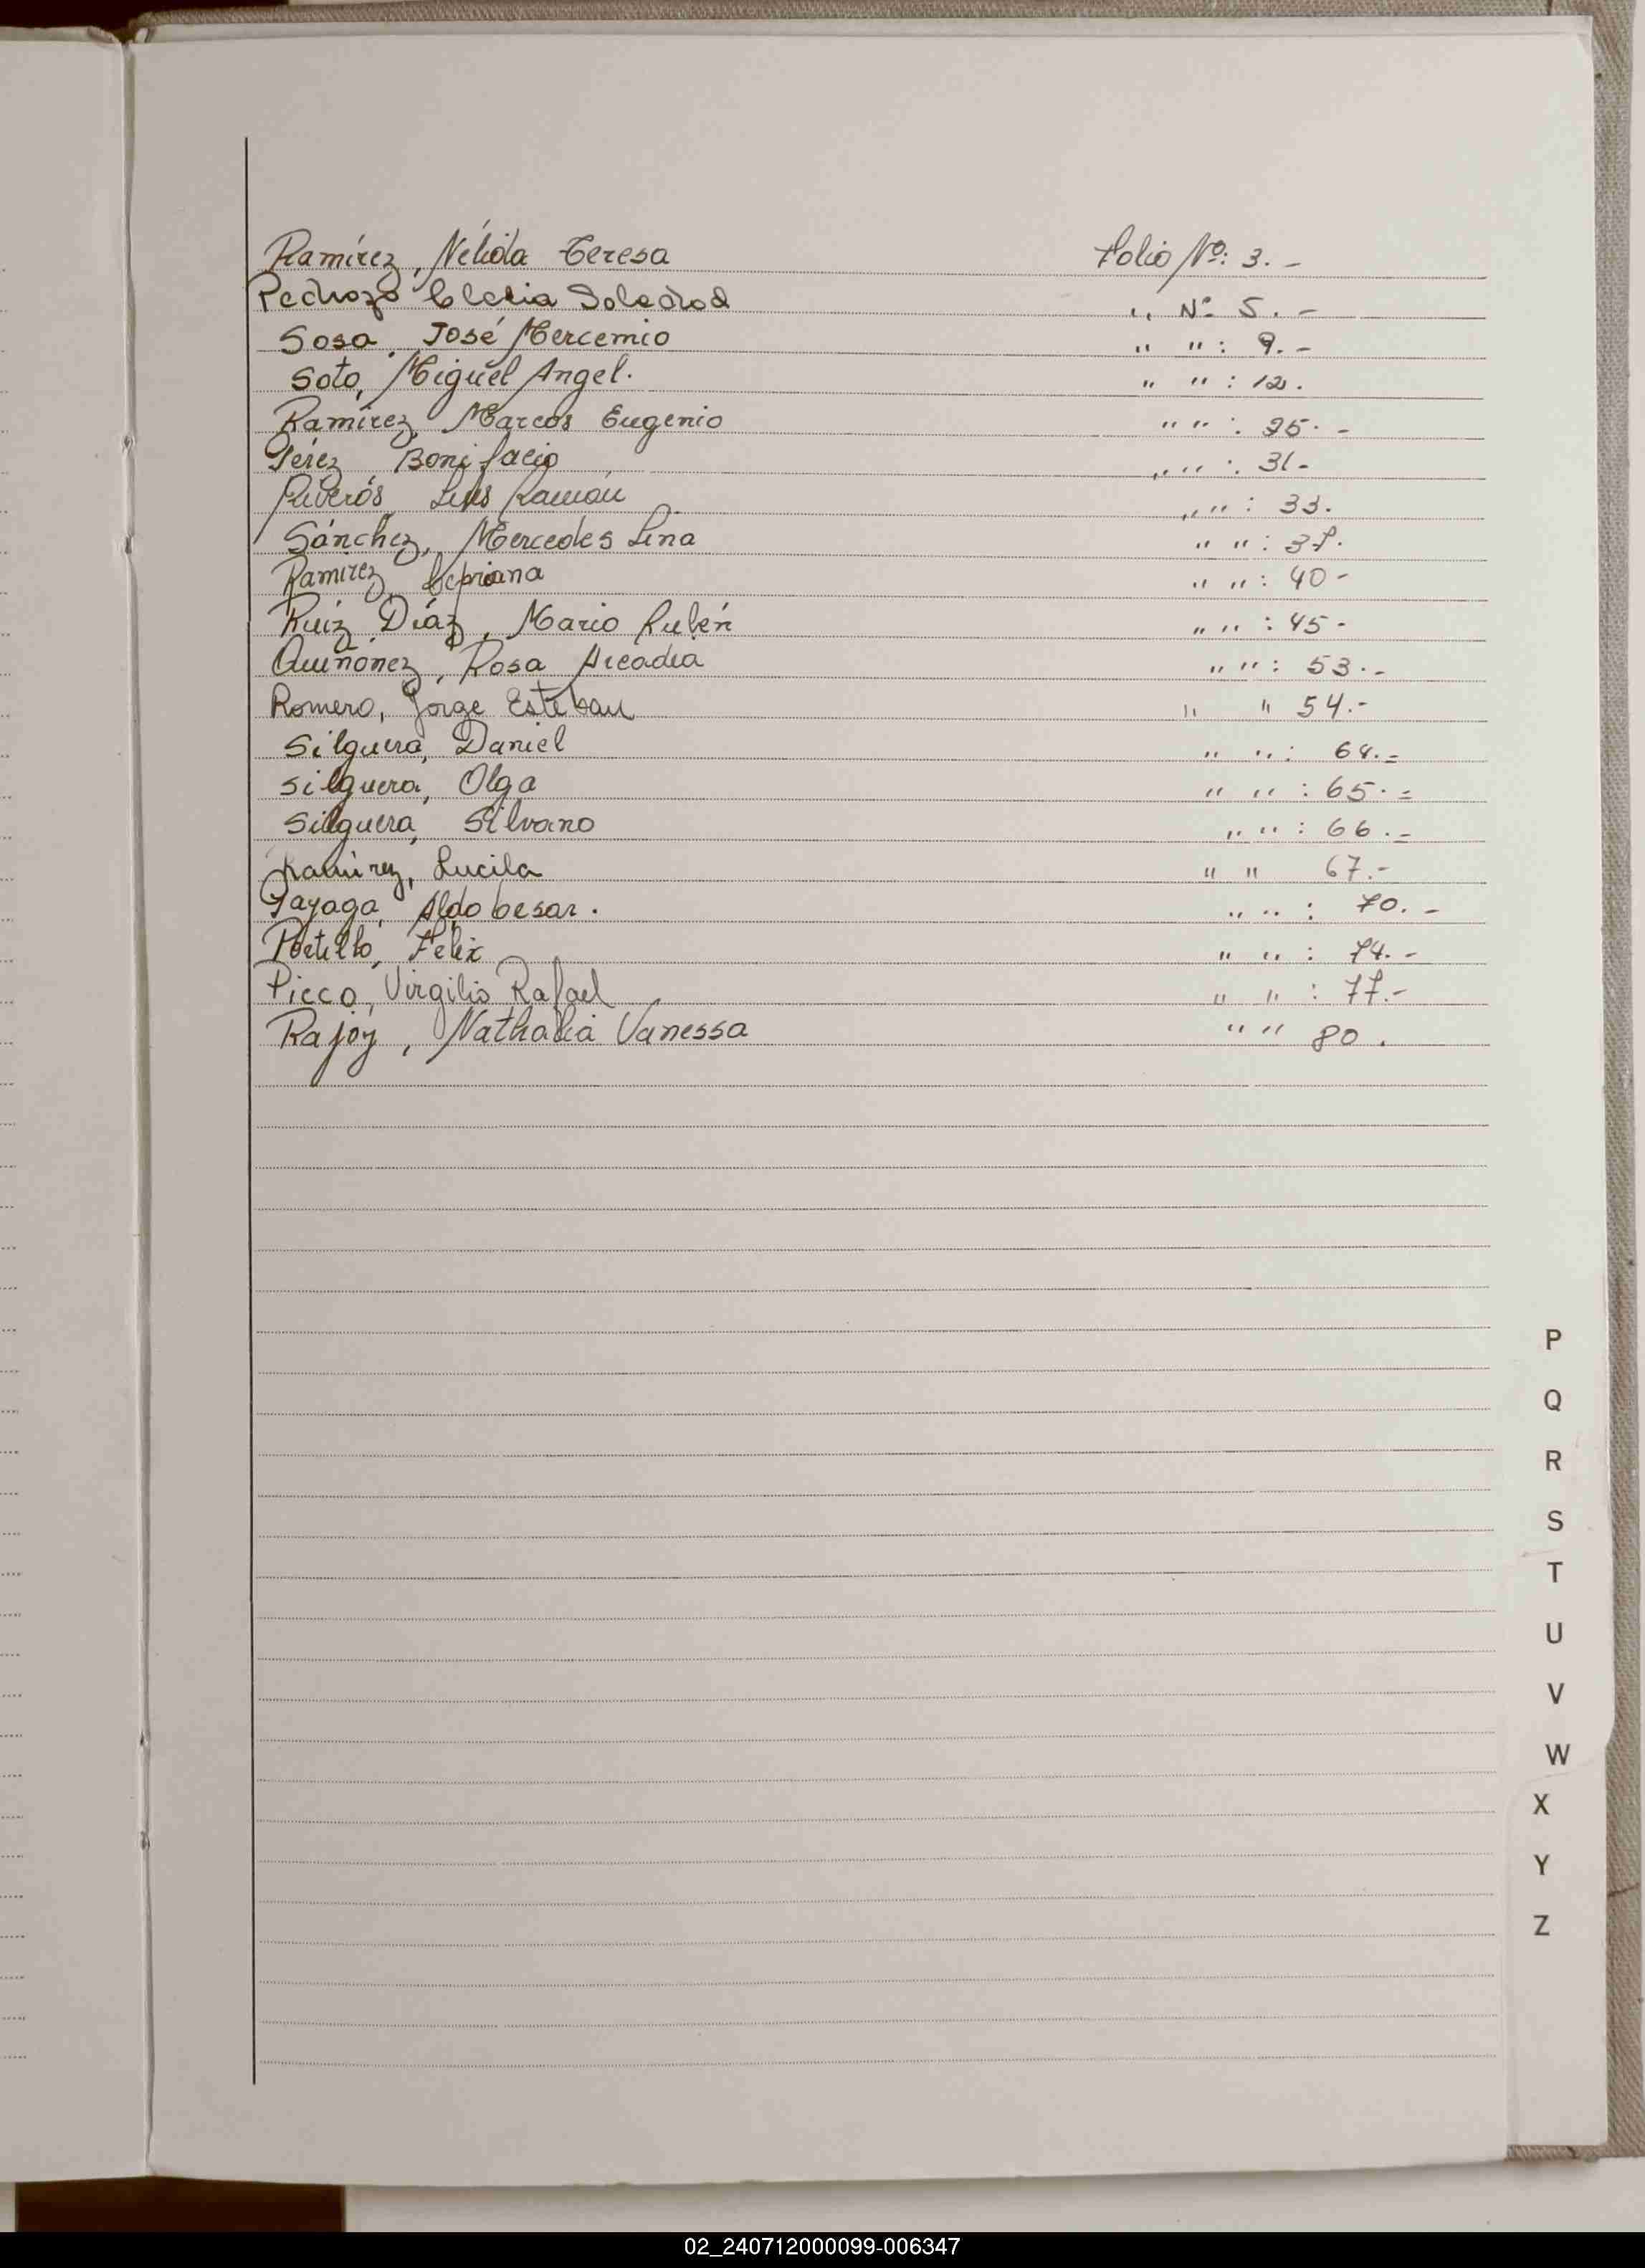 Ramírez, Nélida Teresa Folio Nº: 3. -
Pedrozo Clelia Soledad " Nº 5. -
Sosa, José Mercemio " " : 9. -
Soto, Miguel Angel. " " : 12.
Ramírez, Marcos Eugenio " " : 25. -
Pérez, Bonifacio " " : 31 -
Riveros, Luis Ramón " " : 33.
Sánchez, Mercedes Lina " " : 37.
Ramírez, Cipriana " " : 40 -
Ruiz Díaz, Mario Rubén " " : 45 -
Quiñonez, Rosa Arcadia " " : 53. -
Romero, Jorge Esteban " " 54. -
Silguera, Daniel " " : 64. =
Silguera, Olga " " : 65. =
Silguera, Silvano " " : 66. =
Ramírez, Lucila " " 67. -
Payaga, Aldo Cesar. " " : 70. -
Portillo, Felix " " : 74. -
Picco, Virgilio Rafael " " : 77. -
Rajoy, Nathalia Vanessa " " 80.
P
Q
R
S
T
U
V
W
X
Y
Z
02_240712000099-006347